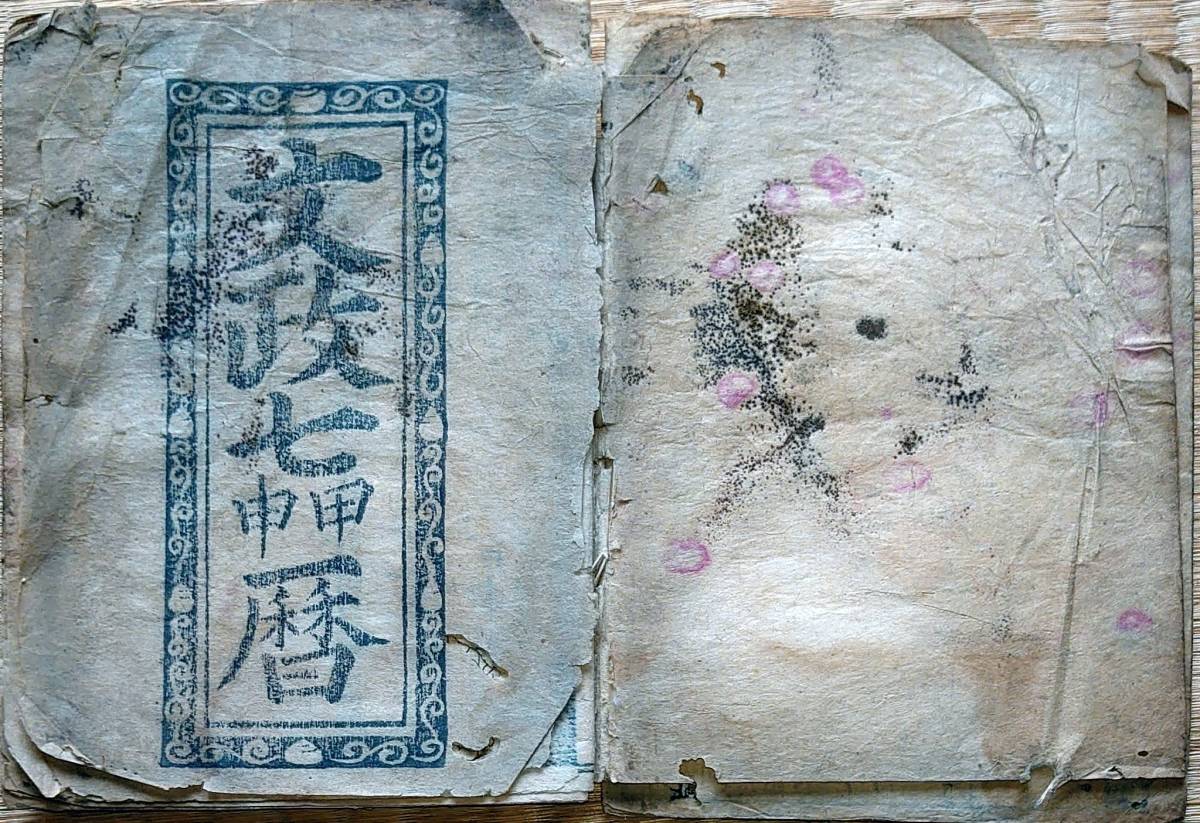 文政七
甲申
暦